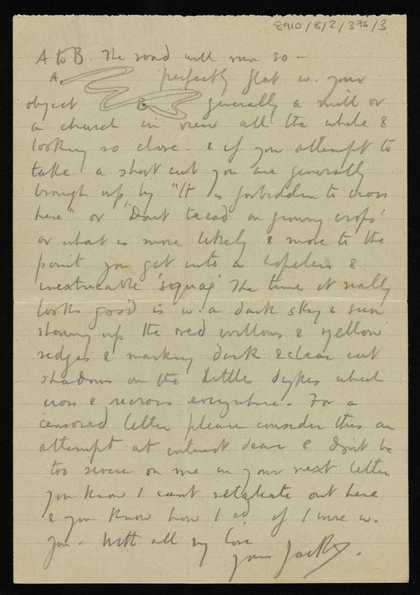 8910/8/2/396/3
A to B. The road will run so —
A perfectly flat w. your
object B generally a mill or
a church in view all the while &
looking so close. & if you attempt to
take a short cut you are generally
brought up by "It is forbidden to cross
here" or "Dont tread on growing crops"
or what is more likely & more to the
point you get into a hopeless &
inextricable 'squap' The time it really
looks good is w. a dark sky & sun
showing up the red willows & yellow
sedges & marking dark & clear cut
shadows on the little dykes which
cross & recross everywhere. For a
censored letter please consider this an
attempt at interest dear & don't be
too severe on me in your next letter
you know I cant retaliate out here
& you know how I cd. if I were w.
you. With all my love
your Jack